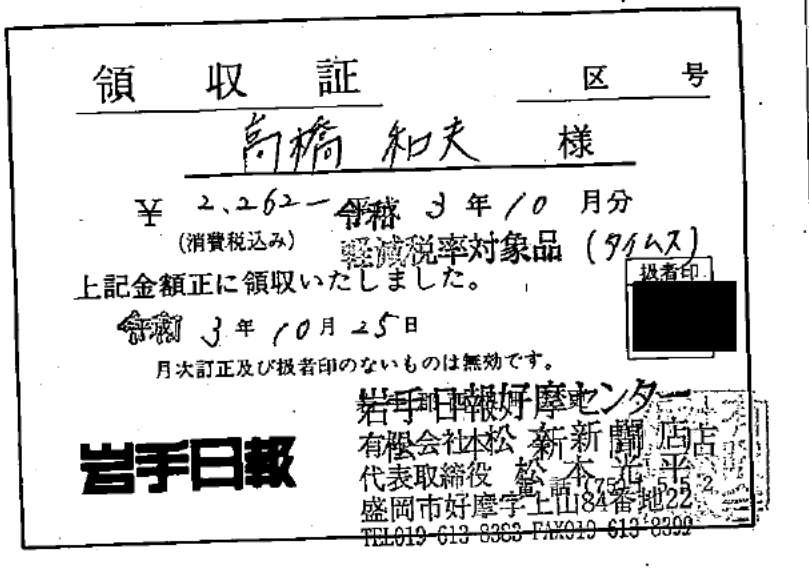 領 収 証
区 号
高橋 和夫 様
¥ 2,262-
令和 3 年 10 月分
(消費税込み)
軽減税率対象品 (タイムス)
上記金額正に領収いたしました。
扱者印
令和 3 年 10 月 25 日
月次訂正及び扱者印のないものは無効です。
岩手日報
岩手日報好摩センター
有限会社 松本新聞店
代表取締役 松本光平
盛岡市好摩字上山84番地22
TEL019-613-8383 FAX019-613-8399